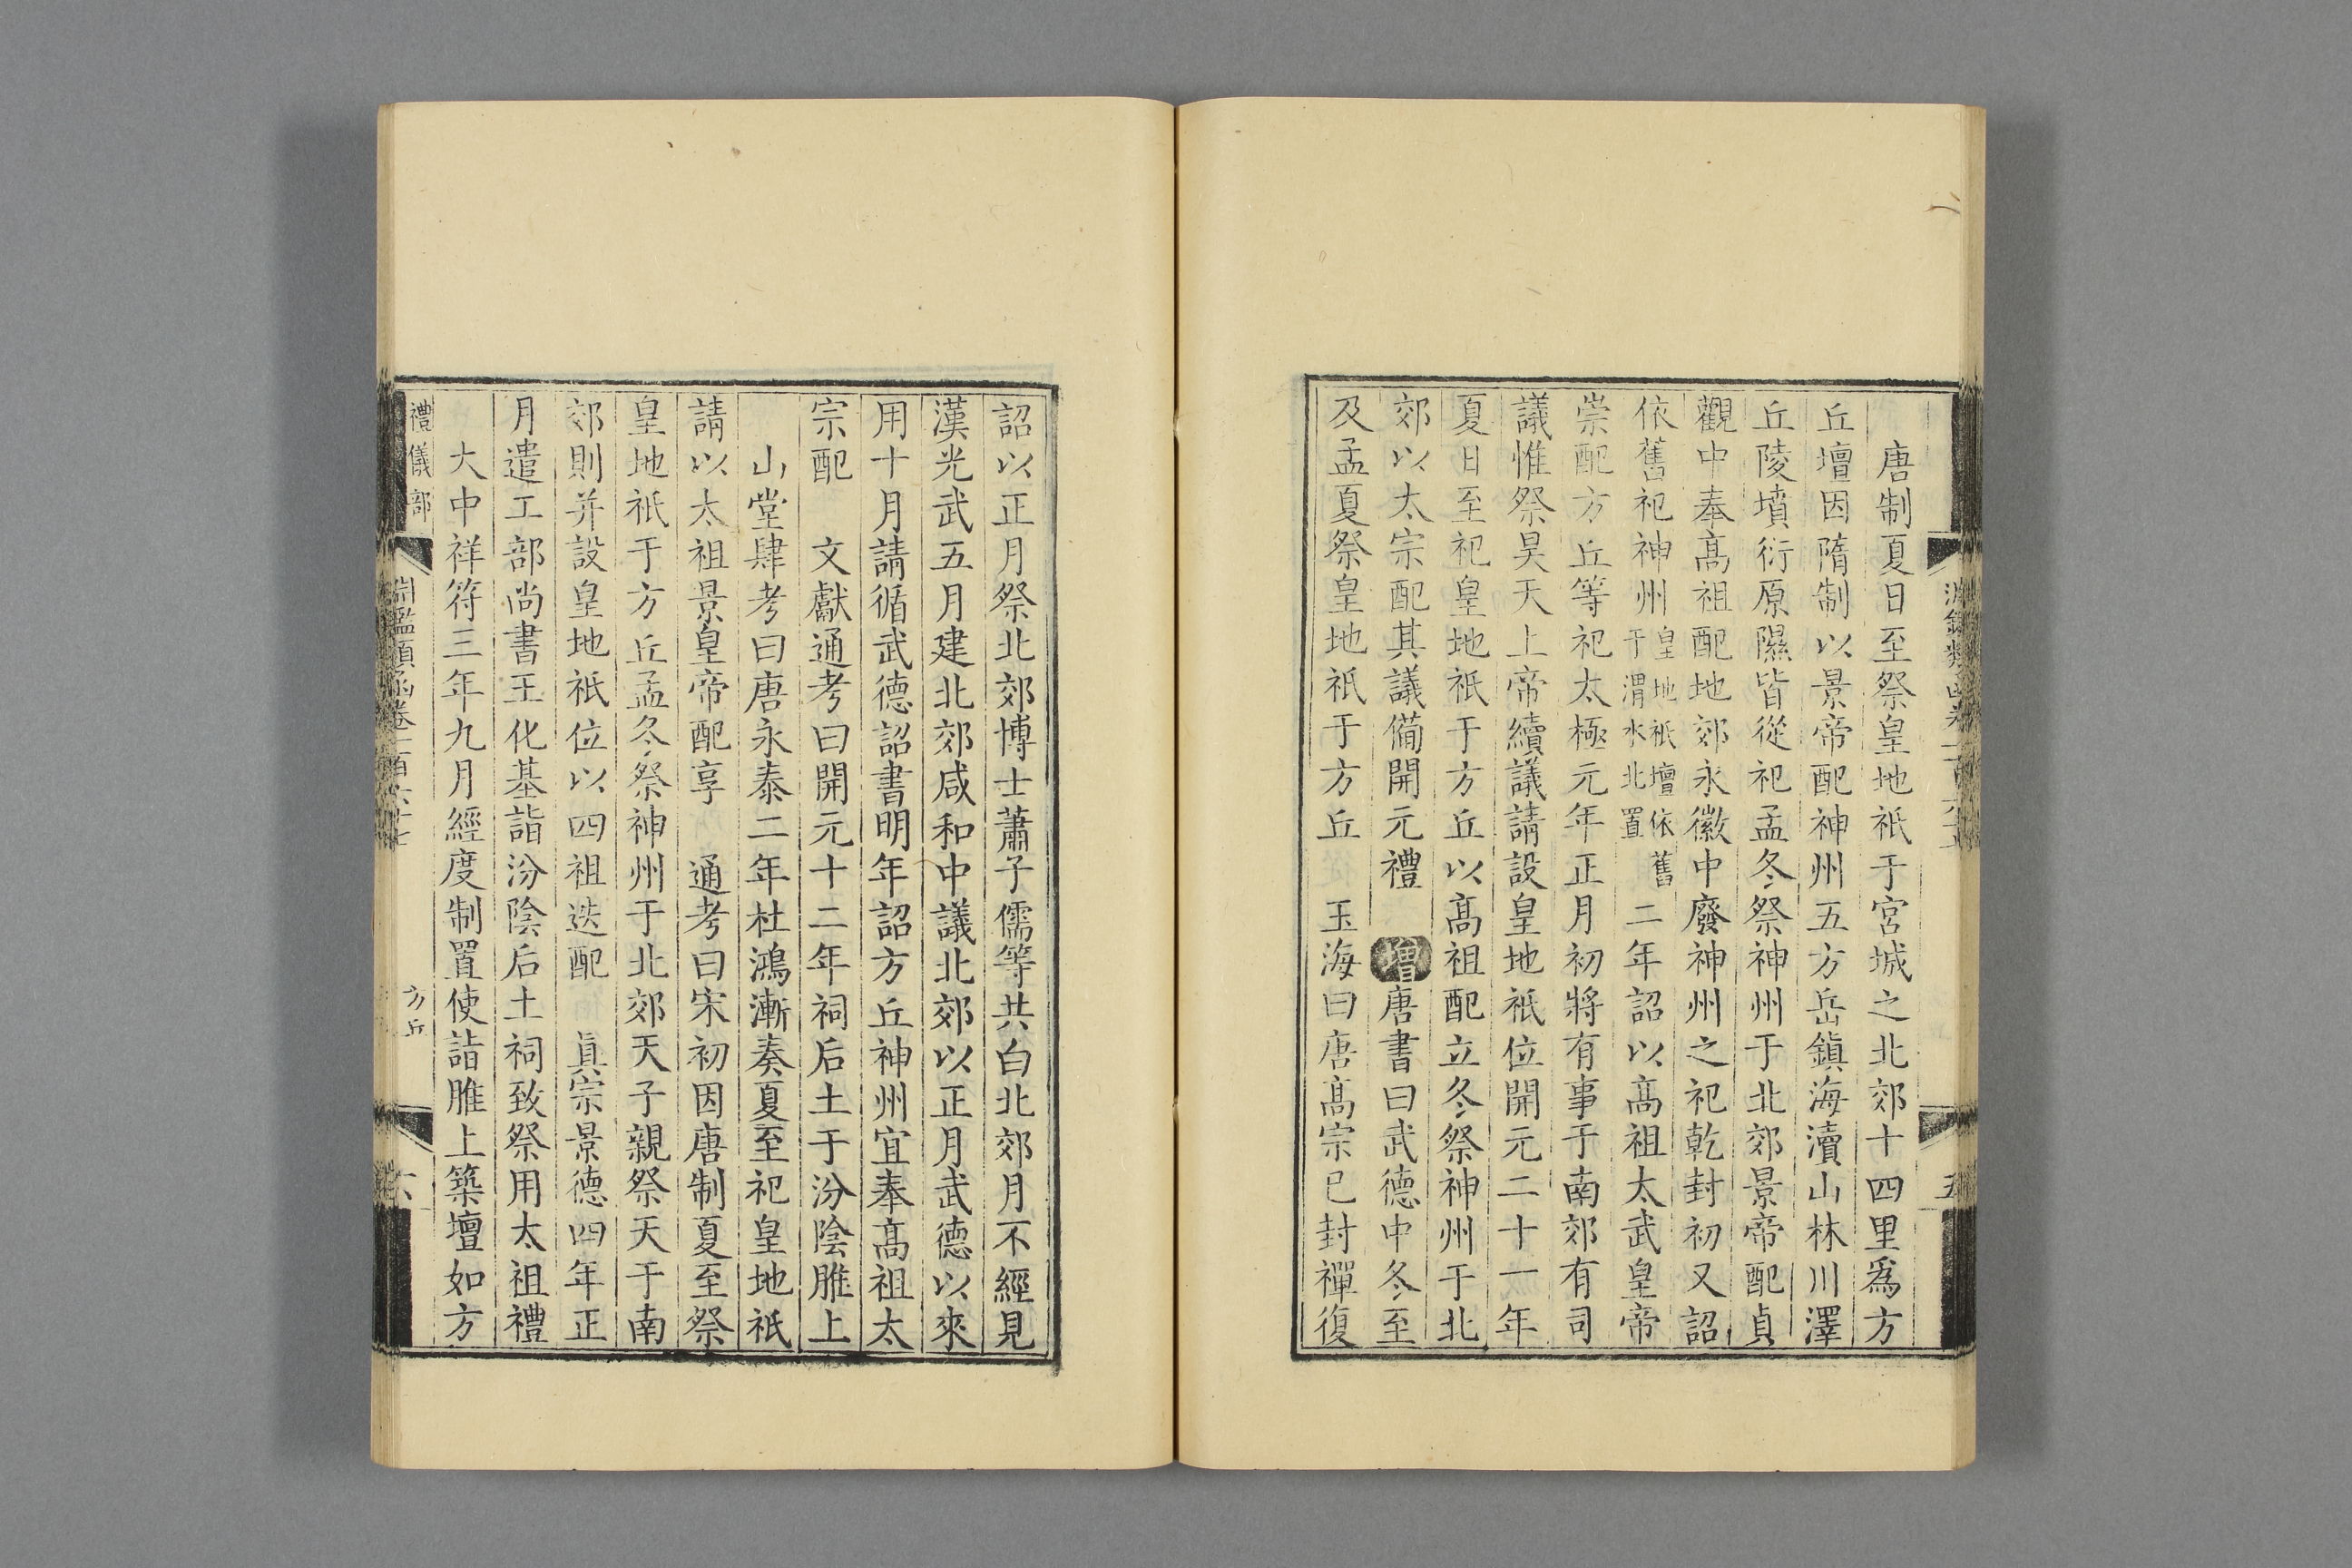 唐制夏日至祭皇地祇于宮城之北郊十四里爲方
丘壇因隋制以景帝配神州五方岳鎮海瀆山林川澤
丘陵墳衍原隰皆從祀孟冬祭神州于北郊景帝配貞
觀中奉高祖配地郊永徽中廢神州之祀乾封初又詔
依舊祀神州皇地祇壇依舊于渭水北置二年詔以高祖太武皇帝
崇配方丘等祀太極元年正月初將有事于南郊有司
議惟祭昊天上帝續議請設皇地祇位開元二十一年
夏日至祀皇地祇于方丘以高祖配立冬祭神州于北
郊以太宗配其議備開元禮 增唐書曰武德中冬至
及孟夏祭皇地祇于方丘 玉海曰唐高宗已封禪復
詔以正月祭北郊博士蕭子儒等共白北郊月不經見
漢光武五月建北郊咸和中議北郊以正月武德以來
用十月請循武德詔書明年詔方丘神州宜奉高祖太
宗配 文獻通考曰開元十二年祠后土于汾陰脽上
山堂肆考曰唐永泰二年杜鴻漸奏夏至祀皇地祇
請以太祖景皇帝配享 通考曰宋初因唐制夏至祭
皇地祇于方丘孟冬祭神州于北郊天子親祭天于南
郊則并設皇地祇位以四祖迭配 眞宗景德四年正
月遣工部尚書王化基詣汾陰后土祠致祭用太祖禮
大中祥符三年九月經度制置使詣脽上築壇如方
禮儀部
淵鑑類函卷一百六十七
方丘
六